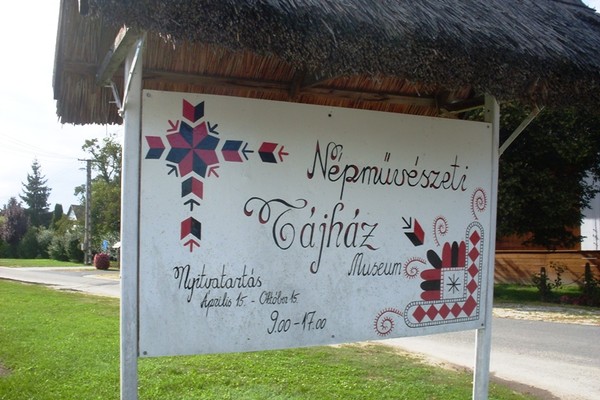 Népművészeti
Tájház
Museum
Nyitvatartás
Április 15. - Októba 15.
9.00 - 17.00